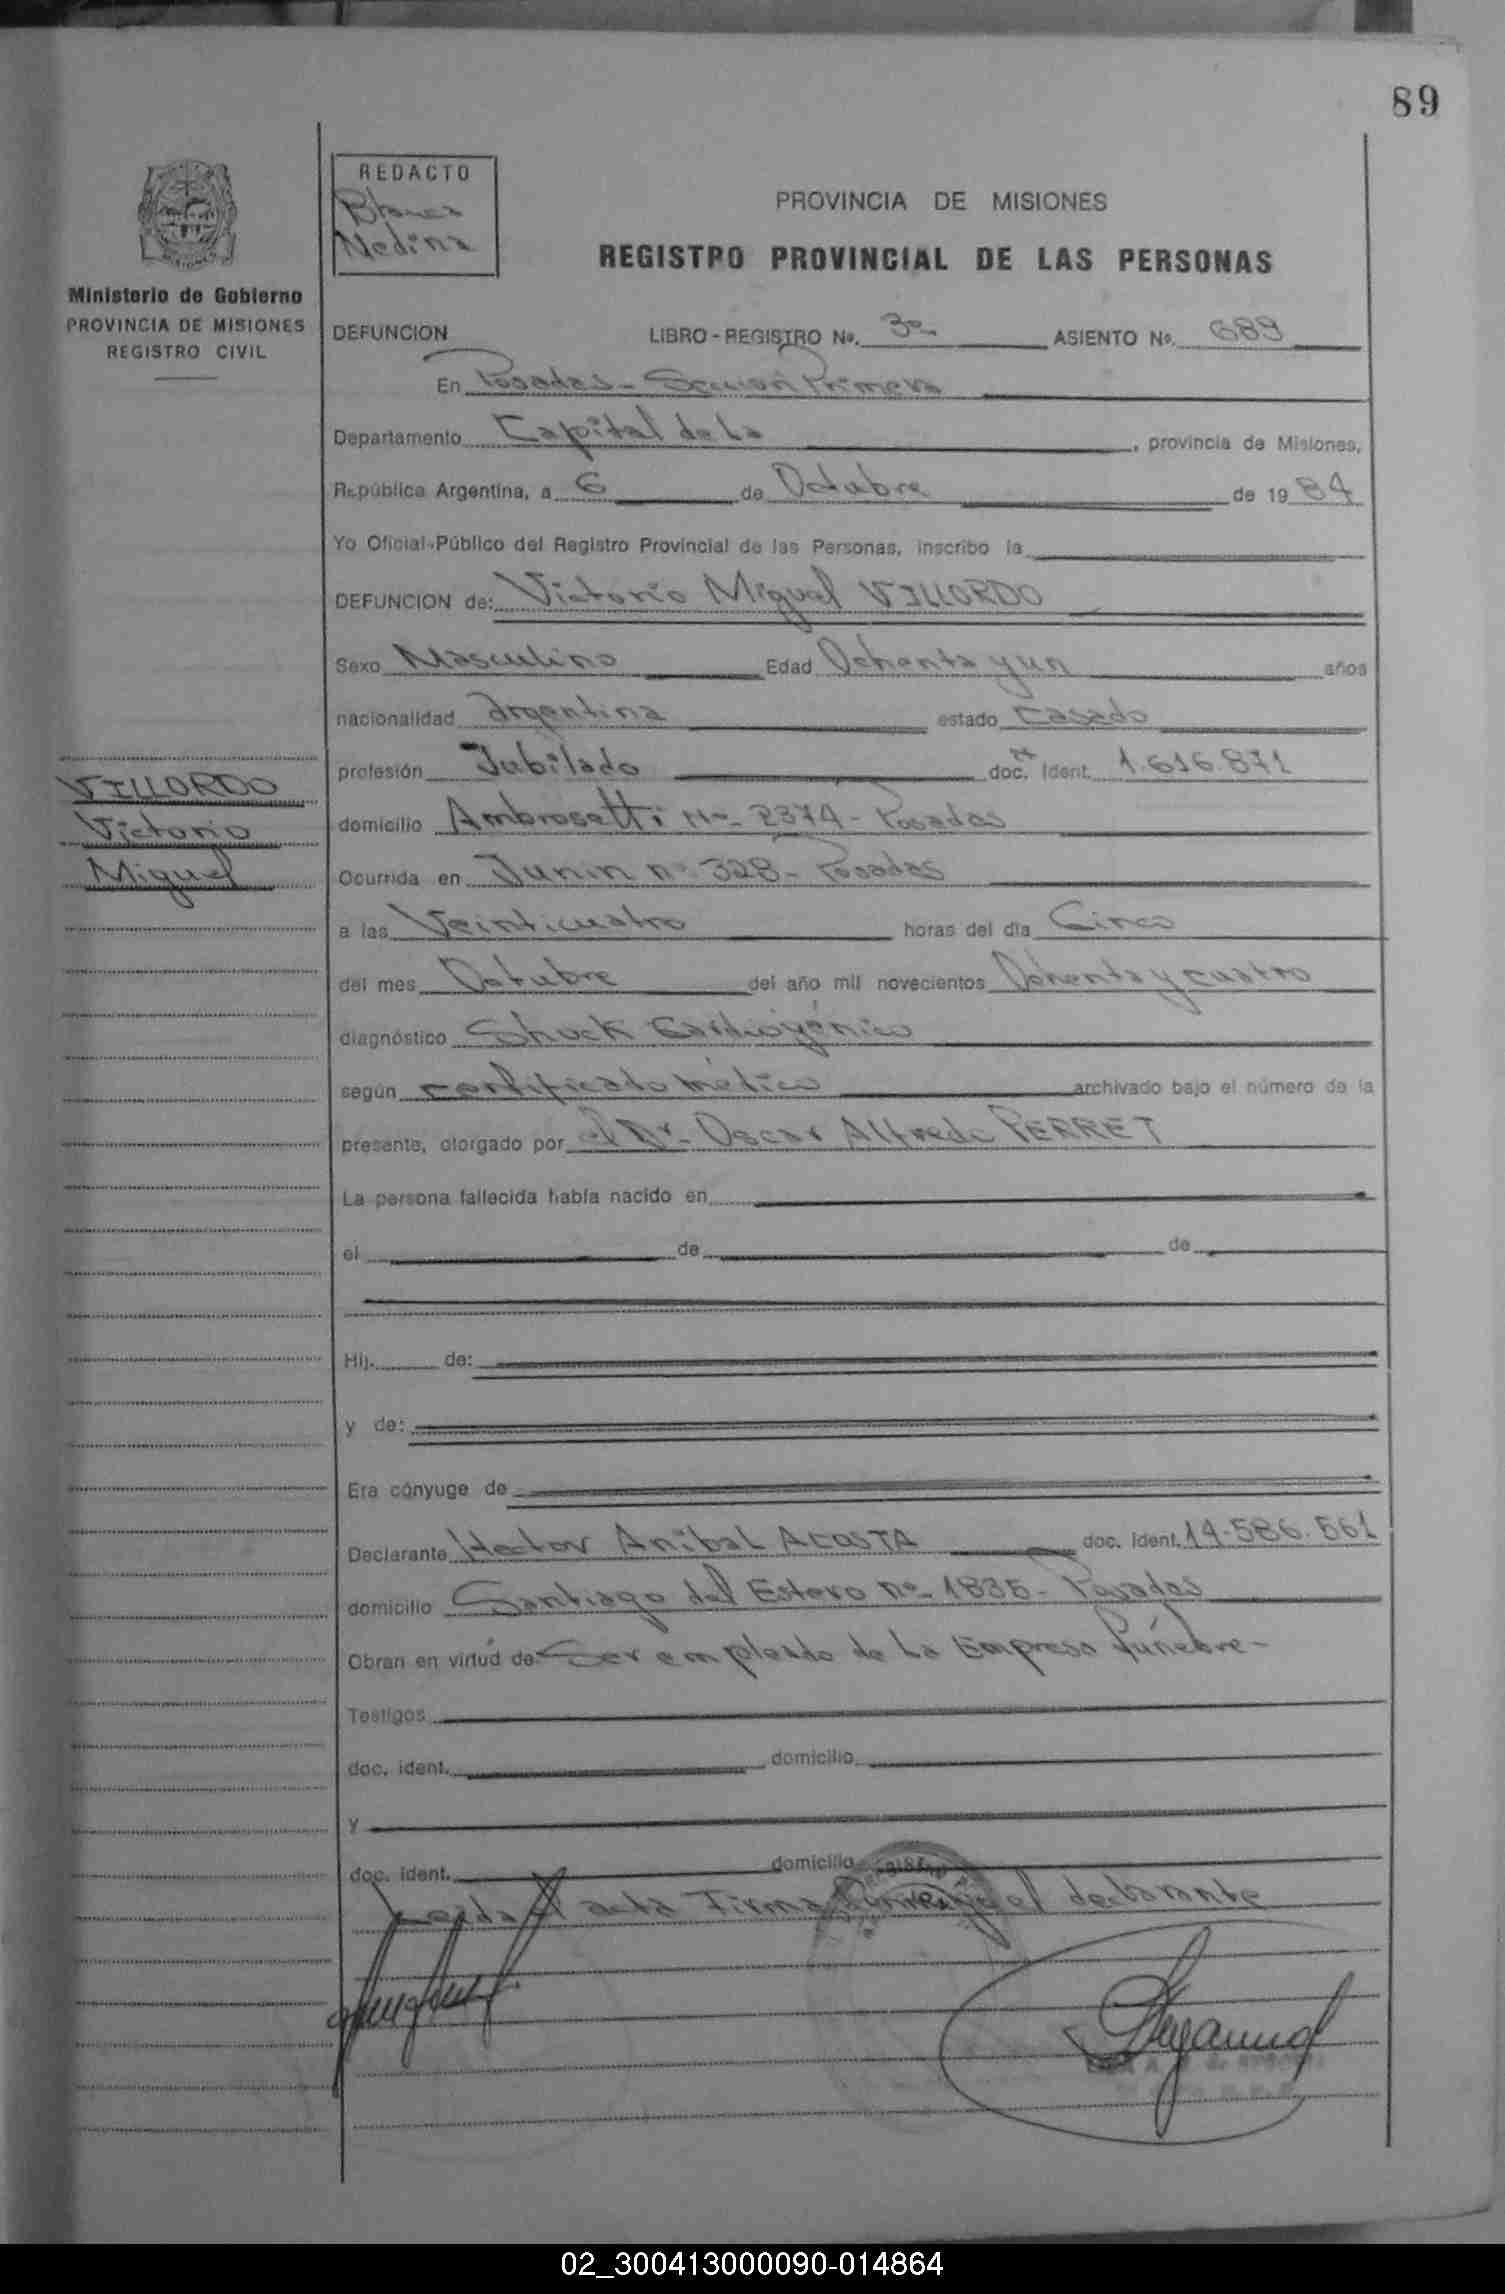 89
REDACTO
Blanca
Medina
PROVINCIA DE MISIONES
REGISTRO PROVINCIAL DE LAS PERSONAS
Ministerio de Gobierno
PROVINCIA DE MISIONES
REGISTRO CIVIL
DEFUNCION LIBRO - REGISTRO No. 3o- ASIENTO No. 689
En Posadas - Sección Primera
Departamento Capital de la , provincia de Misiones,
República Argentina, a 6 de Octubre de 1984
Yo Oficial Público del Registro Provincial de las Personas, inscribo la
DEFUNCION de: Victorio Miguel VILLORDO
Sexo Masculino Edad Ochenta y un años
nacionalidad argentina estado casado
profesión Jubilado doc. Ident. 1.616.871
VILLORDO
Victorio
Miguel
domicilio Ambrosetti No- 2374 - Posadas
Ocurrida en Junin no 328 - Posadas
a las Veinticuatro horas del día Cinco
del mes Octubre del año mil novecientos Ochenta y cuatro
diagnóstico Shock Cardiogénico
según certificado médico archivado bajo el número de la
presente, otorgado por el Dr. Oscar Alfredo PERRET
La persona fallecida había nacido en
el de de
Hij. de:
y de:
Era cónyuge de
Declarante Hector Anibal ACOSTA doc. Ident. 14.586.561
domicilio Santiago del Estero no- 1835 - Posadas
Obran en virtud de Ser empleado de la Empresa fúnebre -
Testigos
doc. ident. domicilio
y
doc. ident. domicilio
Leida el acta Firma Conmigo el declarante
02_300413000090-014864